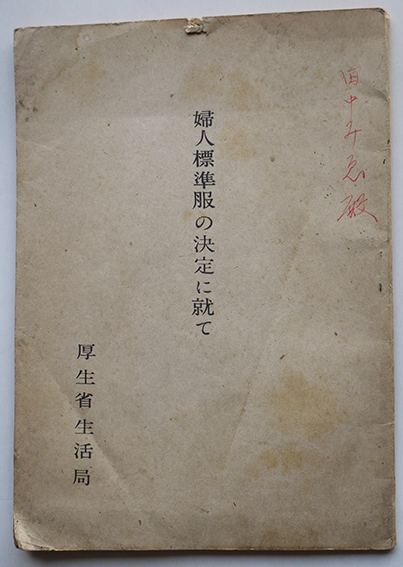 田中みゑ殿
婦人標準服の決定に就て
厚生省生活局